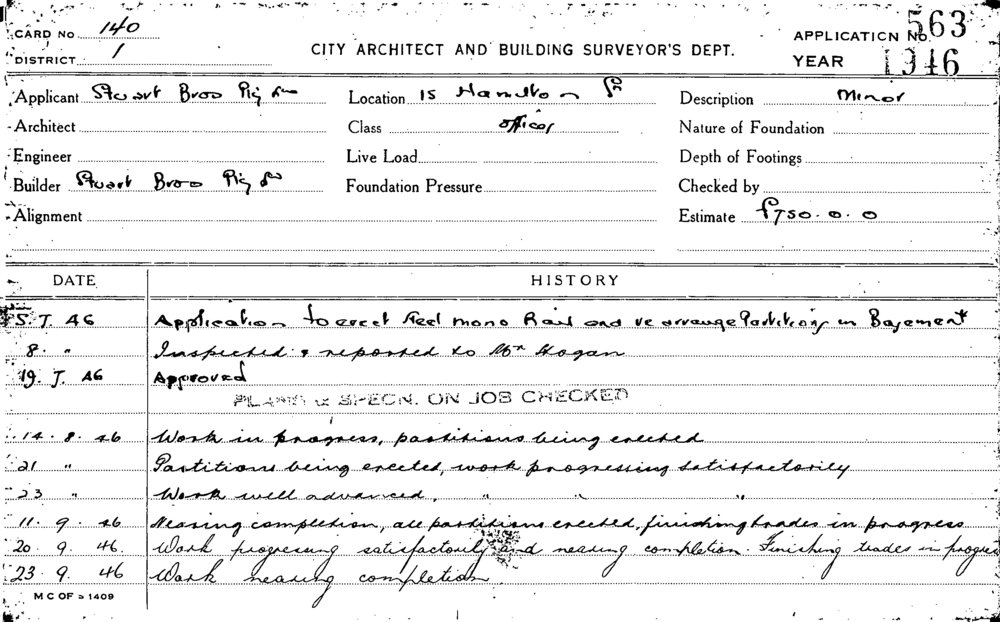 CARD No. 140
DISTRICT 1
CITY ARCHITECT AND BUILDING SURVEYOR'S DEPT.
APPLICATION No. 563
YEAR 1946
Applicant Stuart Bros Pty Ltd
Location 15 Hamilton St
Description Minor
Architect
Class offices
Nature of Foundation
Engineer
Live Load
Depth of Footings
Builder Stuart Bros Pty Ltd
Foundation Pressure
Checked by
Alignment
Estimate £750.0.0
DATE HISTORY
5. 7. 46 Application to erect steel mono Rail and re arrange Partitions in Basement
8. " Inspected & reported to Mr Hogan
19. 7. 46 Approved
PLANS & SPECN. ON JOB CHECKED
14. 8. 46 Work in progress, partitions being erected
21 " Partitions being erected, work progressing satisfactorily
23 " Work well advanced. " " "
11. 9. 46 Nearing completion, all partitions erected, finishing trades in progress
20. 9. 46. Work progressing satisfactorily and nearing completion. Finishing trades in progress
23. 9. 46 Work nearing completion
M C OF S 1409